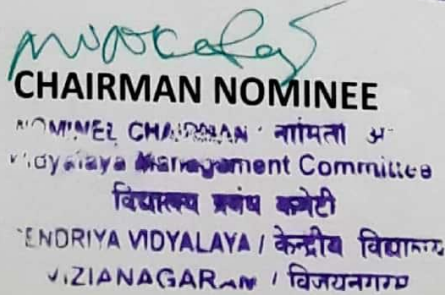 CHAIRMAN NOMINEE
NOMINEE CHAIRMAN
Vidyalaya Management Committee
विद्यालय प्रबंध कमेटी
KENDRIYA VIDYALAYA / केन्द्रीय विद्यालय
VIZIANAGARAM / विजयनगरम